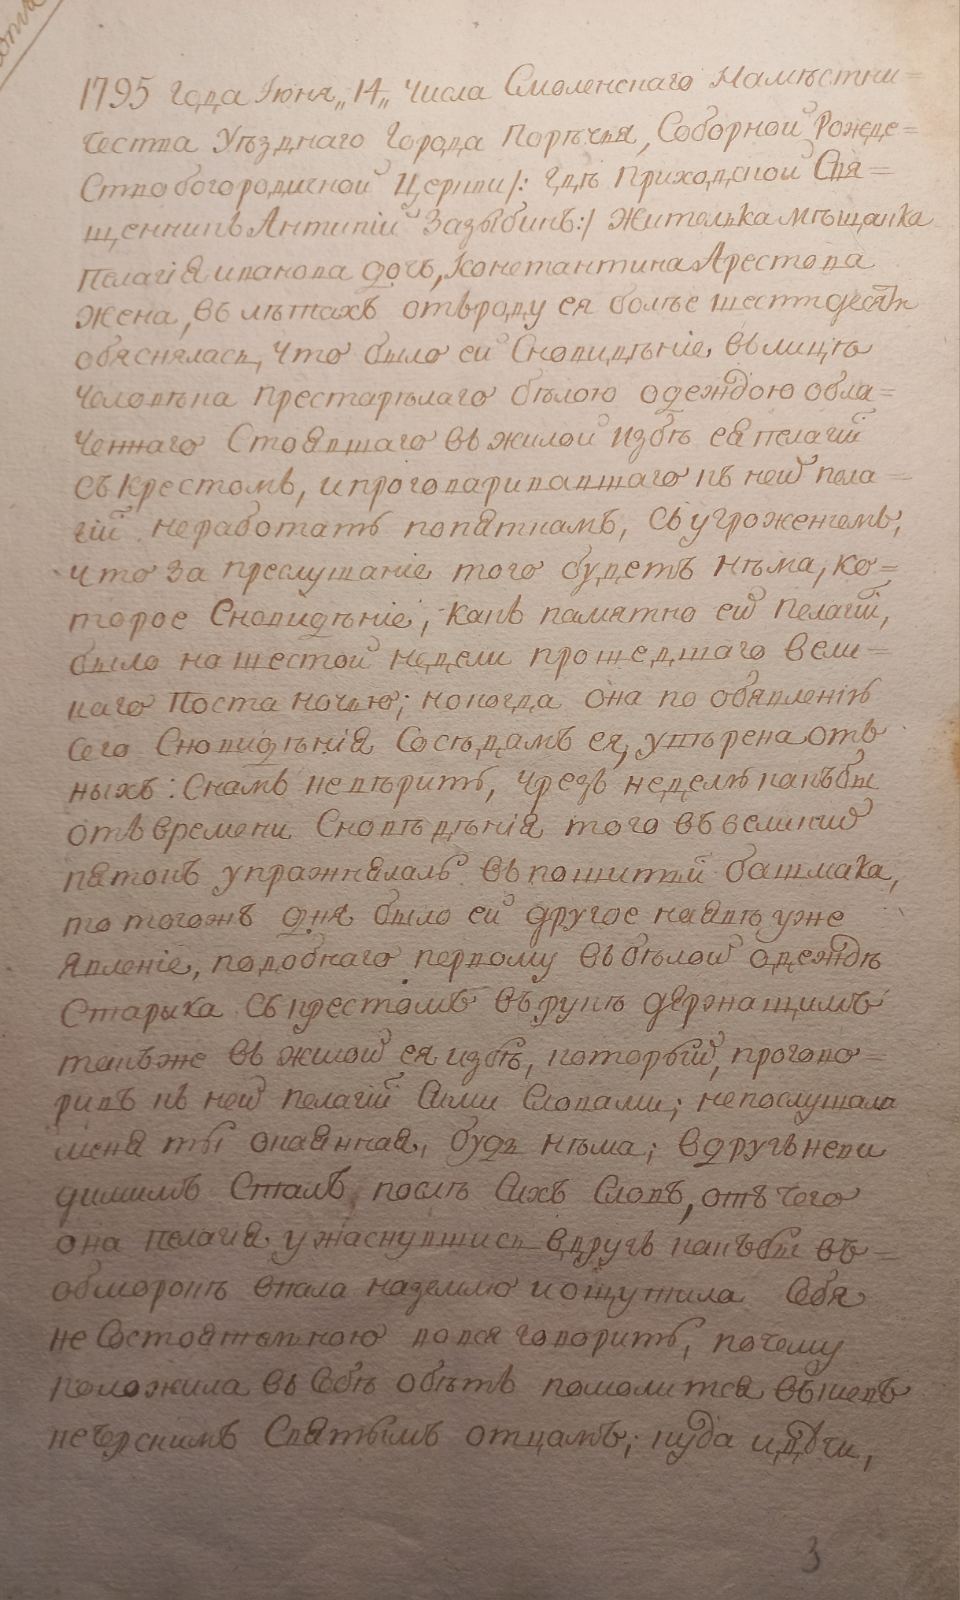 1795 года Июня „14„ числа Смоленскаго Намѣстни=
чества Уѣзднаго Города Порѣчья, Соборной Рожде=
Ство богородичной Церкви /: гдѣ приходской Свя=
щенникъ Антипій Зазыбинъ :/ жителька мѣщанка
Пелагія иванова дочь, Константина Арестова
жена, въ лѣтахъ отъ роду ея болѣе шестидесятъ
обяснялась, что было ей Сновидѣніе, въ лицѣ
человѣка престарѣлаго бѣлою одеждою обла=
ченнаго Стоявшаго въ жилой избѣ ея пелагіи
съ крестомъ, и проговаривавшаго къ ней пела=
гіи не работать попяткамъ, съ угроженіемъ,
что за преслушаніе того будетъ нѣма, ко=
торое Сновидѣніе, какъ памятно ей Пелагіи,
было на шестой недели прошедшаго вели=
каго Поста ночью; но когда она по обявленію
сего Сновидѣнія Сосѣдамъ ея, увѣрена отъ
ныхъ: Снамъ не вѣрить, чрезъ неделю какъ бы
отъ времени Сновѣдѣнія того въ великій
пятокъ упражнялась въ пошитьи башмака,
то того жъ дня было ей другое наявѣ уже
явленіе, подобнаго первому въ бѣлой одеждѣ
Старика съ крестомъ въ рукѣ держащимъ
такъ же въ жилой ея избѣ, который, прогово=
рилъ къ ней пелагіи Сими Словами; не послушала
меня ты окаянная, будь нѣма; вдругъ неви
димымъ Сталъ, послѣ Сихъ Словъ, отъ чего
она пелагія ужаснувшись вдругъ какъ бы въ=
обморокъ впала на землю и ощутила Себя
не Состоятельною вовся говорить, почему
положила въ Себѣ обѣтъ помолится въ кіевѣ
печерскимъ Святымъ отцамъ; куда идучи,
3